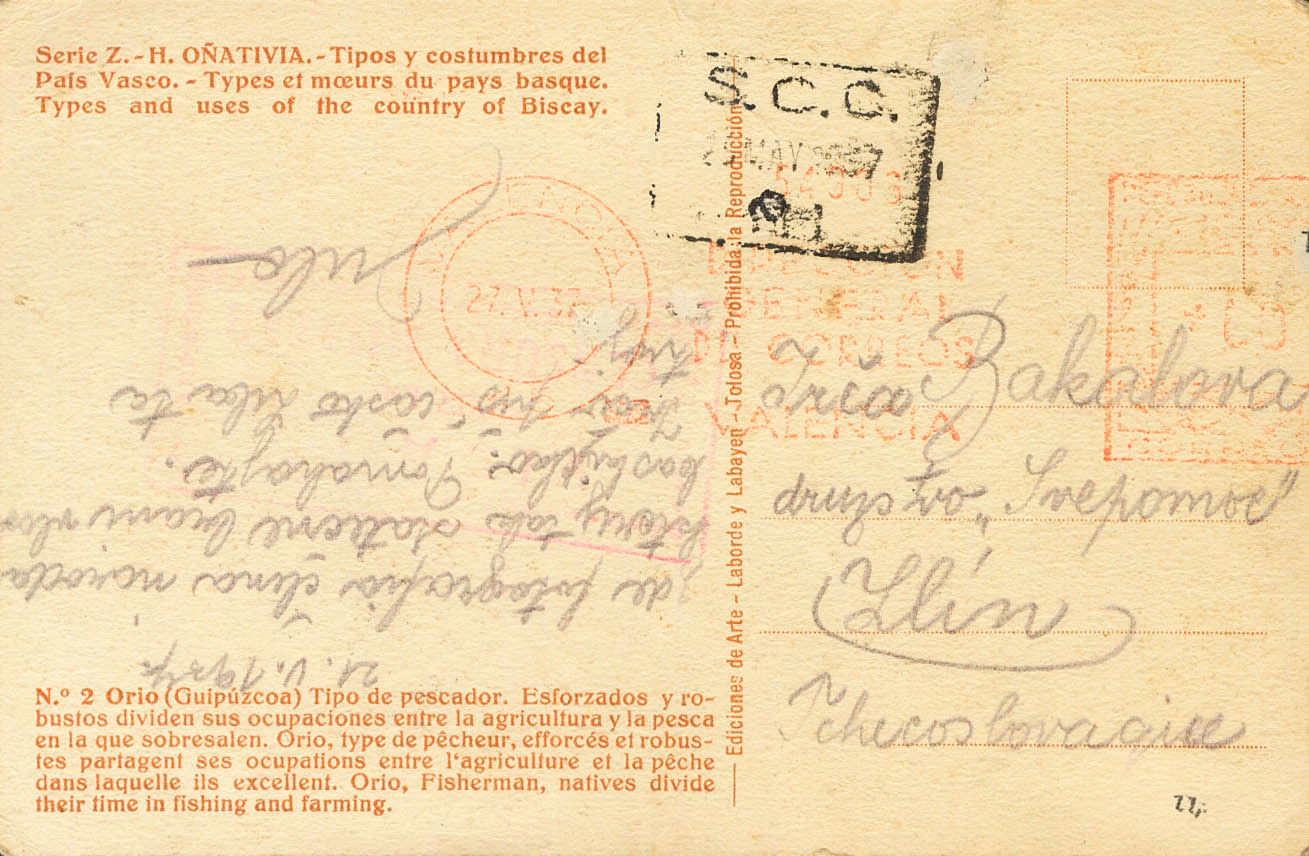 Serie Z. - H. OÑATIVIA. - Tipos y costumbres del
País Vasco. - Types et mœurs du pays basque.
Types and uses of the country of Biscay.
S. C. C.
MAY
VALENCIA
27.V.37
GENERAL
DE CORREOS
VALENCIA
Ediciones de Arte - Laborde y Labayen - Tolosa - Prohibida la Reproducción
21. V. 1937.
je fotografia člena národa
který tak statečně brání vlast
baskitskou. Pomáhajte.
na Vás často líbá tá
tvůj
Bakalova
družstvo „Svépomoc"
Zlín
Tchecoslovaquie
N.º 2 Orio (Guipúzcoa) Tipo de pescador. Esforzados y ro-
bustos dividen sus ocupaciones entre la agricultura y la pesca
en la que sobresalen. Orio, type de pêcheur, efforcés et robus-
tes partagent ses ocupations entre l'agriculture et la pêche
dans laquelle ils excellent. Orio, Fisherman, natives divide
their time in fishing and farming.